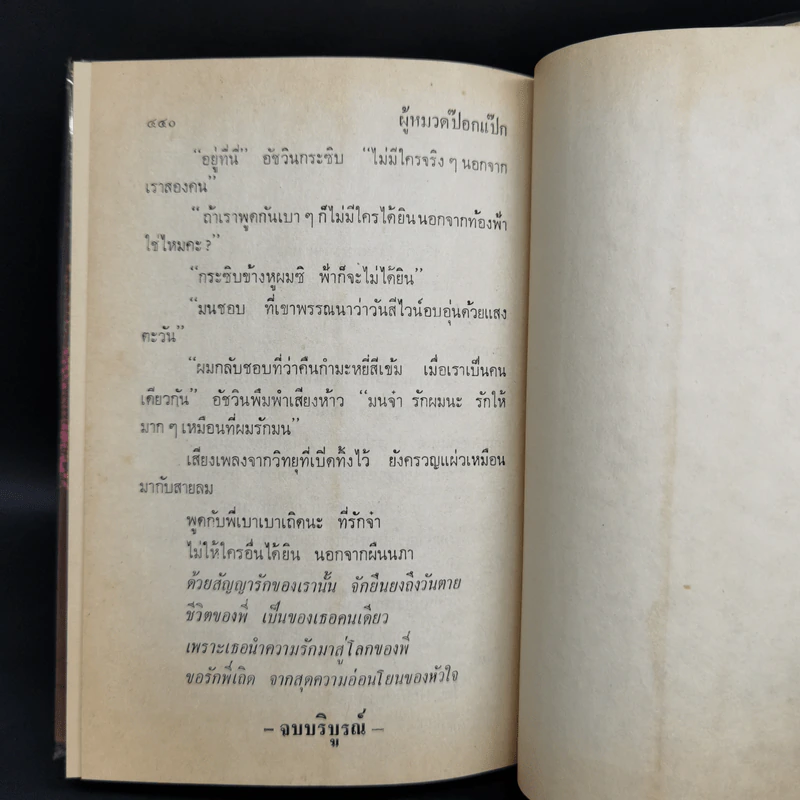 ๔๕๐ ผู้หมวดป๊อกแป๊ก
“อยู่ที่นี่” อัชวินกระซิบ “ไม่มีใครจริง ๆ นอกจาก
เราสองคน”
“ถ้าเราพูดกันเบา ๆ ก็ไม่มีใครได้ยินนอกจากท้องฟ้า
ใช่ไหมคะ ?”
“กระซิบข้างหูผมซิ ฟ้าก็จะไม่ได้ยิน”
“มนชอบ ที่เขาพรรณนาว่าวันสีไวน์อบอุ่นด้วยแสง
ตะวัน”
“ผมกลับชอบที่ว่าคืนกำมะหยี่สีเข้ม เมื่อเราเป็นคน
เดียวกัน” อัชวินพึมพำเสียงห้าว “มนจ๋า รักผมนะ รักให้
มาก ๆ เหมือนที่ผมรักมน”
เสียงเพลงจากวิทยุที่เปิดทิ้งไว้ ยังครวญแผ่วเหมือน
มากับสายลม
พูดกับพี่เบาเบาเถิดนะ ที่รักจ๋า
ไม่ให้ใครอื่นได้ยิน นอกจากผืนนภา
ด้วยสัญญารักของเรานั้น จักยืนยงถึงวันตาย
ชีวิตของพี่ เป็นของเธอคนเดียว
เพราะเธอนำความรักมาสู่โลกของพี่
ขอรักพี่เถิด จากสุดความอ่อนโยนของหัวใจ
– จบบริบูรณ์ –